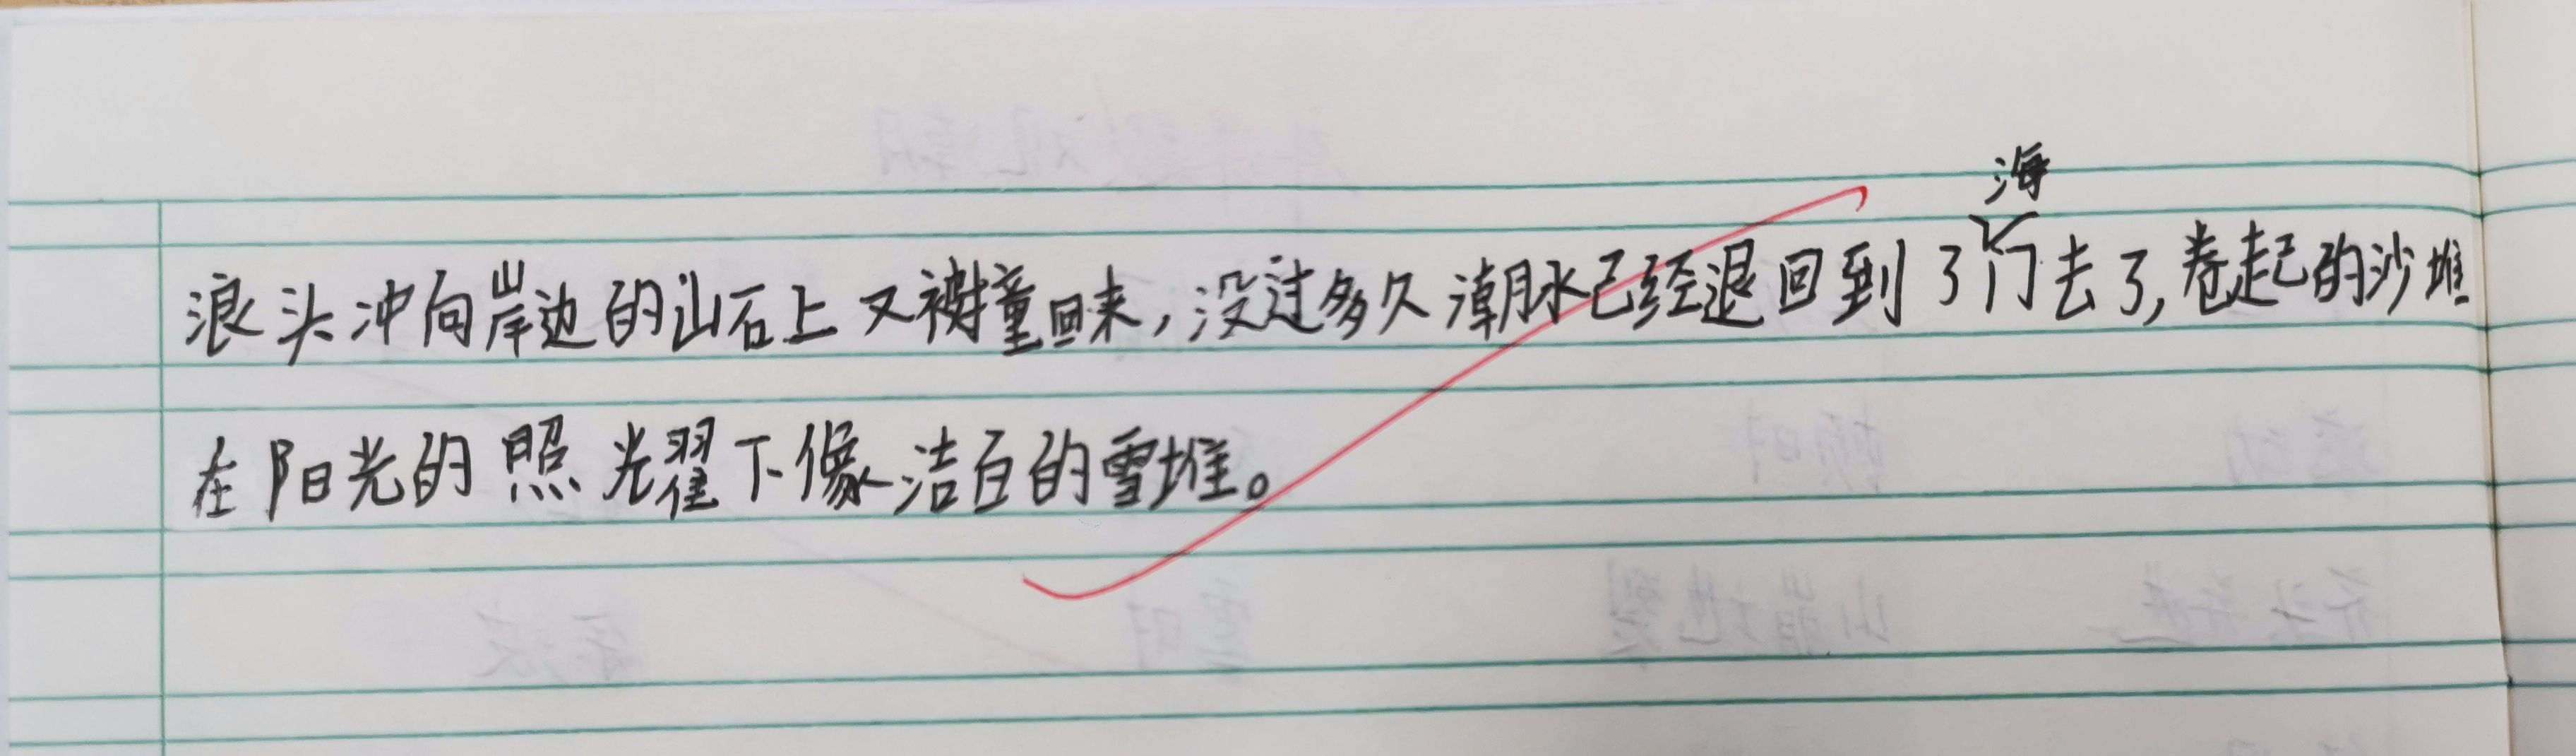 浪头冲向岸边的山石上又被撞回来，没过多久潮水已经退回到了海门去了，卷起的沙堆
在阳光的照光耀下像洁白的雪堆。